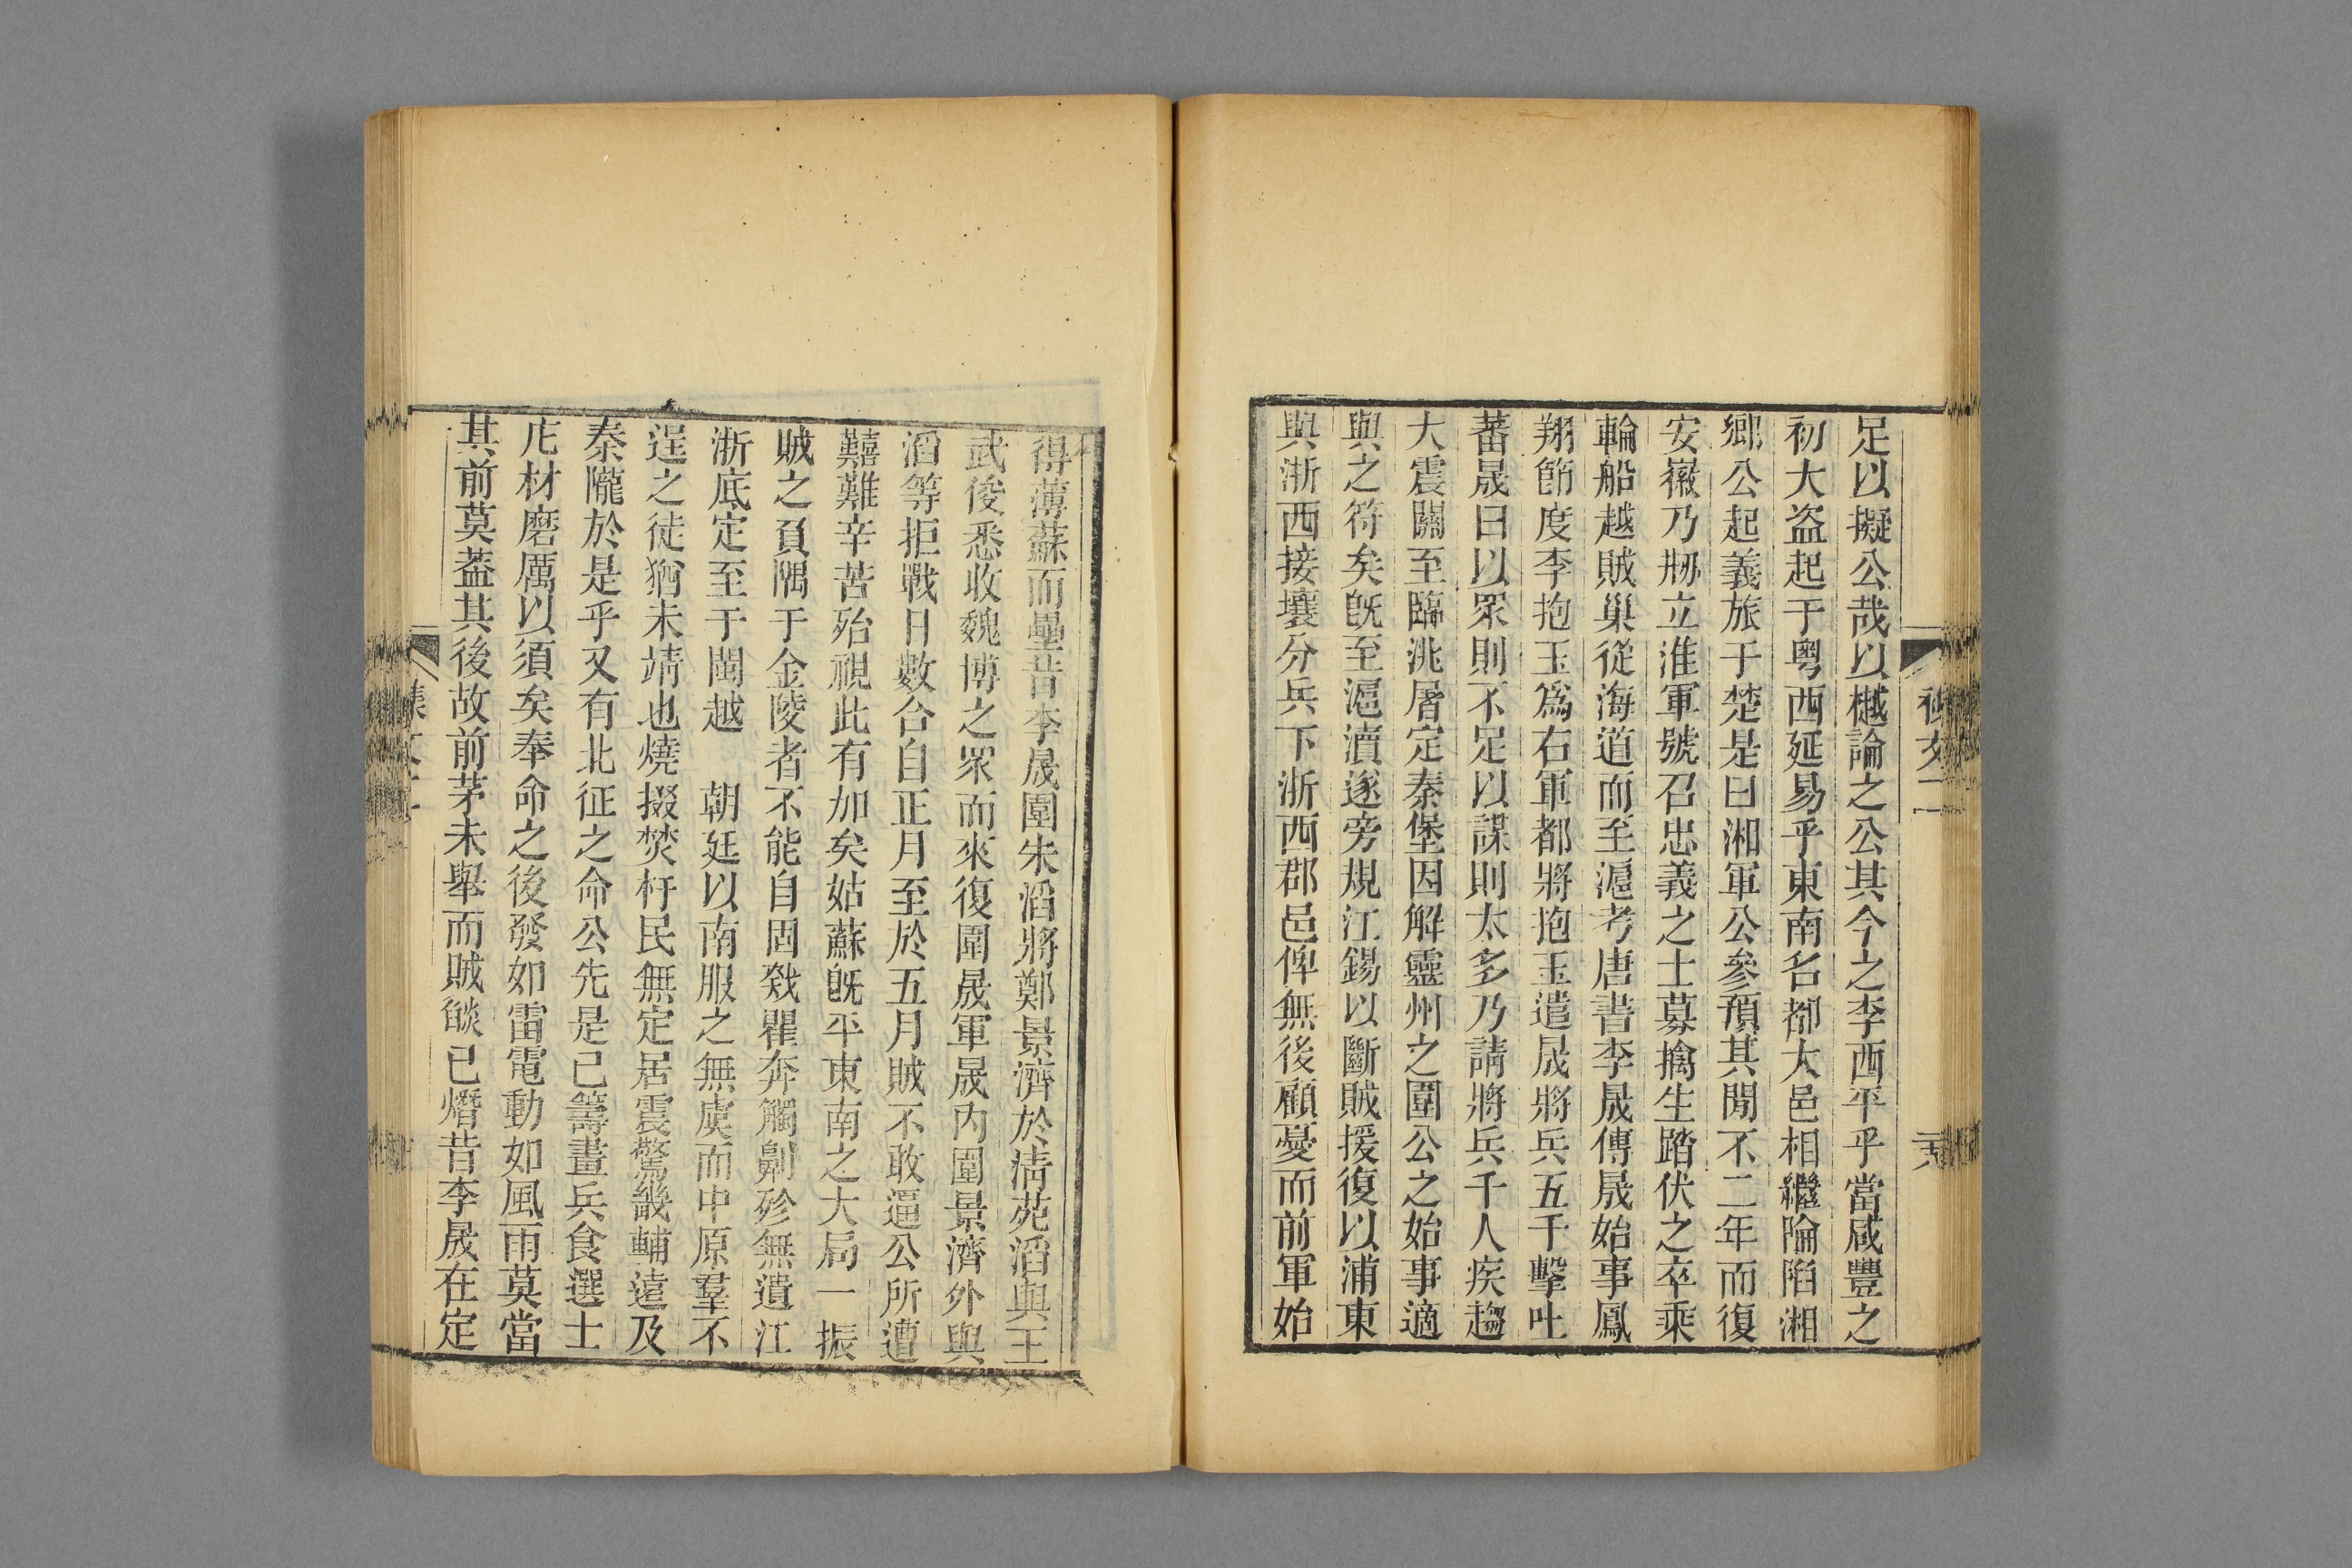 足以擬公哉以樾論之公其今之李西平乎當咸豐之
初大盜起于粵西延易乎東南名都大邑相繼陷陷湘
鄉公起義旅于楚是曰湘軍公參預其閒不二年而復
安徽乃刱立淮軍號召忠義之士募擒生踏伏之卒乘
輪船越賊巢從海道而至滬考唐書李晟傳晟始事鳳
翔節度李抱玉爲右軍都將抱玉遣晟將兵五千擊吐
蕃晟曰以眾則不足以謀則太多乃請將兵千人疾趨
大震關至臨洮屠定秦堡因解靈州之圍公之始事適
與之符矣旣至滬瀆遂旁規江錫以斷賊援復以浦東
與浙西接壤分兵下浙西郡邑俾無後顧憂而前軍始
得薄蘇而壘昔李晟圍朱滔將鄭景濟於淸苑滔與王
武俊悉收魏博之眾而來復圍晟軍晟內圍景濟外與
滔等拒戰日數合自正月至於五月賊不敢逼公所遭
囏難辛苦殆視此有加矣姑蘇旣平東南之大局一振
賊之負隅于金陵者不能自固㦸瞿奔觸劓殄無遺江
浙底定至于閩越　朝廷以南服之無虞而中原羣不
逞之徒猶未靖也燒掇焚杅民無定居震驚畿輔遠及
秦隴於是乎又有北征之命公先是已籌畫兵食選士
庀材磨厲以須矣奉命之後發如雷電動如風雨莫當
其前莫葢其後故前茅未舉而賊燄已熸昔李晟在定